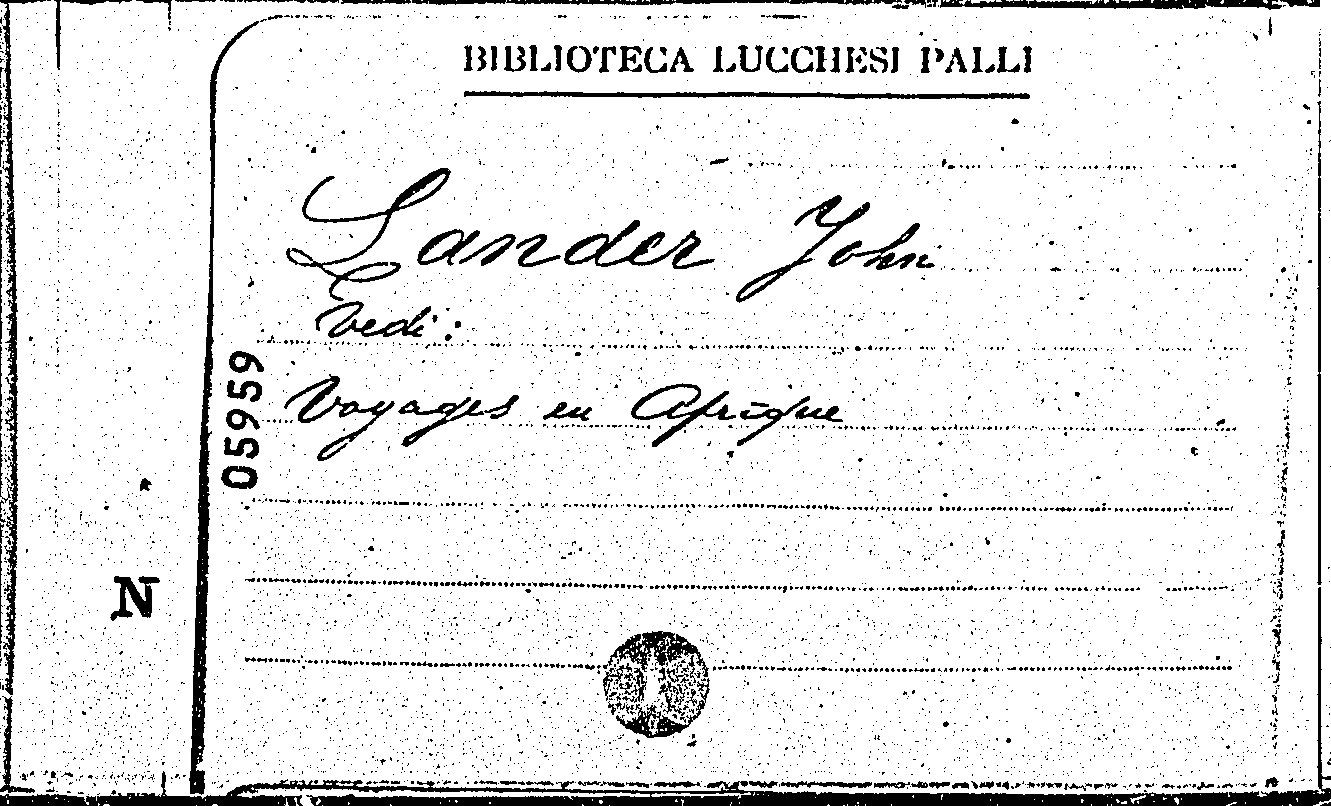 BIBLIOTECA LUCCHESI PALLI
Lander John
Vedi:
Voyages en Afrique
05959
N